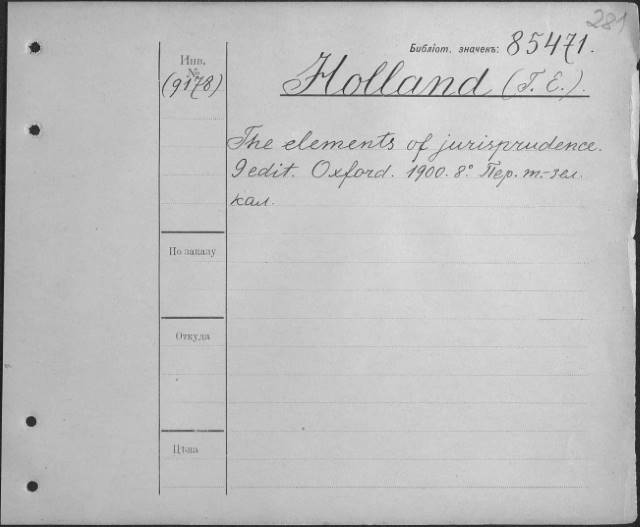 281
Библіот. значекъ: 85471.
Инв.
№
(9178)
Holland (T. E.).
The elements of jurisprudence.
9 edit. Oxford. 1900. 8° Пер. т.-зел.
кал.
По заказу
Откуда
Цѣна